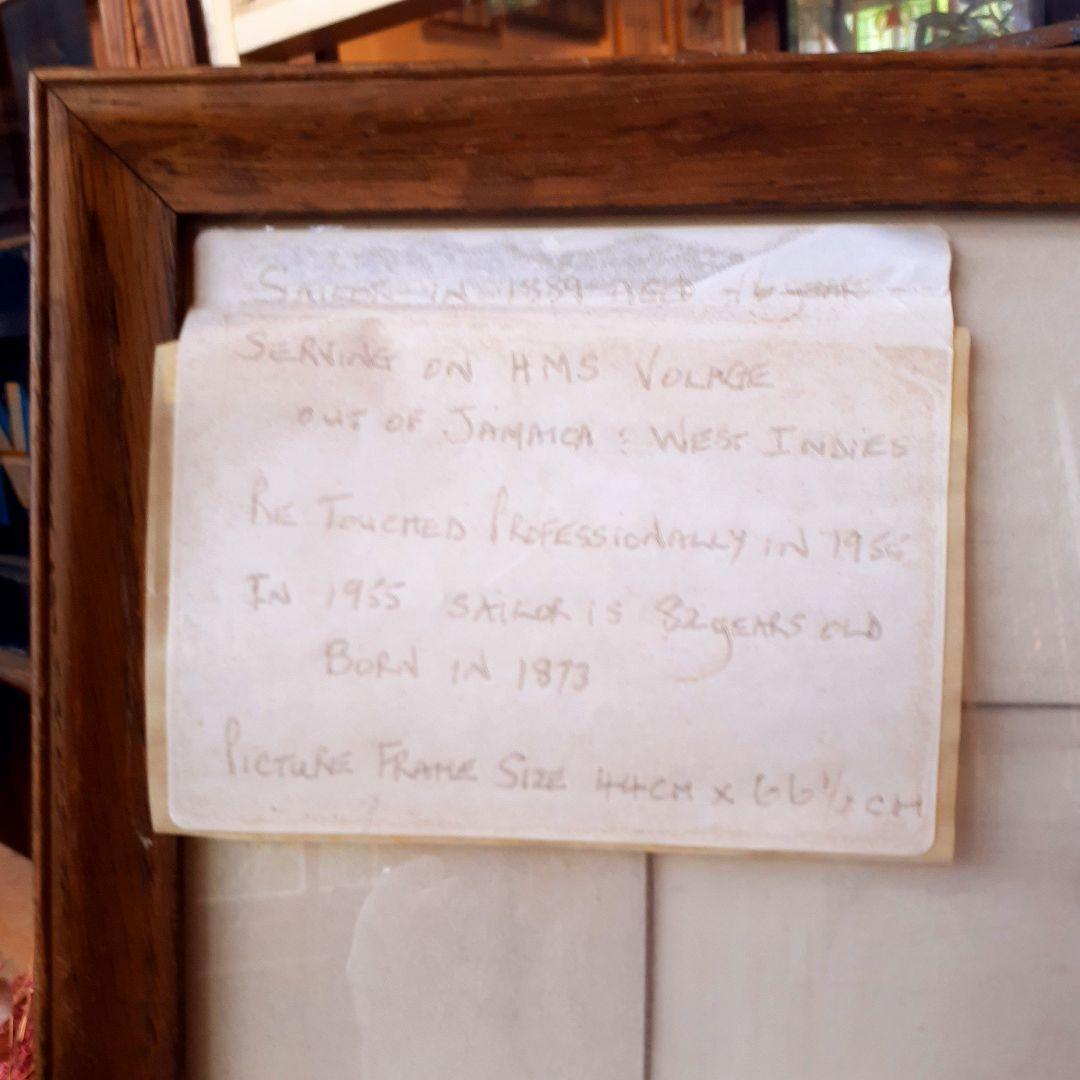 SAILOR IN 1889 AGED 16 years
SERVING ON HMS VOLAGE
OUT OF JAMAICA : WEST INDIES
RE TOUCHED PROFESSIONALLY IN 1955
IN 1955 SAILOR IS 82 yEARS OLD
BORN IN 1873
PICTURE FRAME SIZE 44CM X 66 1/2 CM